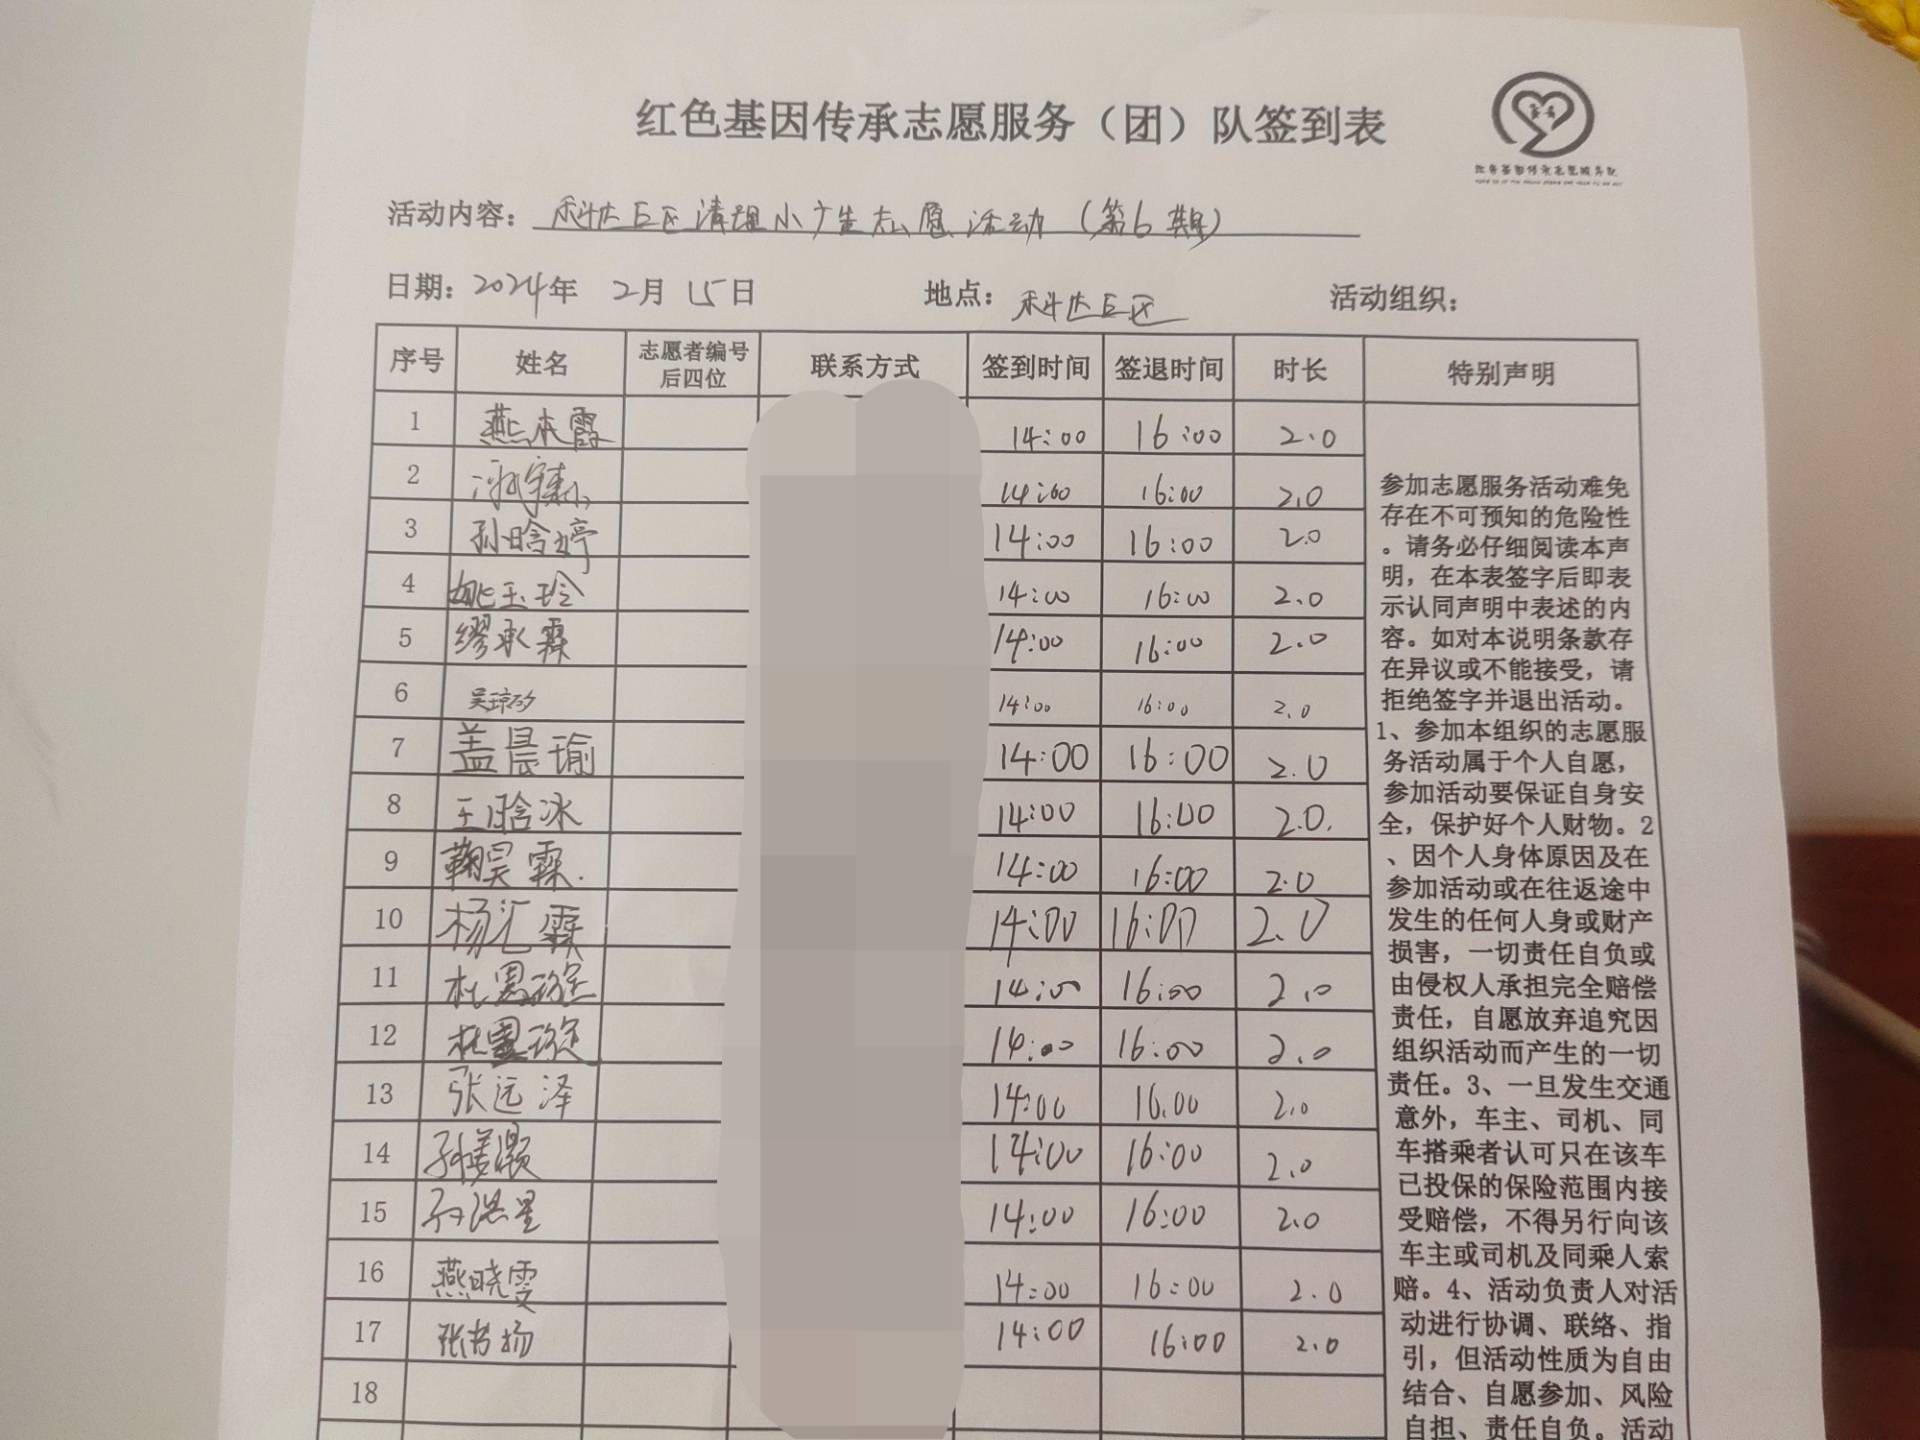 红色基因传承志愿服务（团）队签到表
红色基因传承志愿服务队
活动内容：科达E区清理小广告志愿活动（第6期）
日期：2024年 2月 15日 地点：科达E区 活动组织：
序号 姓名 志愿者编号后四位 联系方式 签到时间 签退时间 时长 特别声明
1 燕本霞 14:00 16:00 2.0
2 14:00 16:00 2.0
3 孙晗婷 14:00 16:00 2.0
4 姚玉玲 14:00 16:00 2.0
5 缪承霖 14:00 16:00 2.0
6 14:00 16:00 2.0
7 盖晨瑜 14:00 16:00 2.0
8 王晗冰 14:00 16:00 2.0.
9 鞠昊霖. 14:00 16:00 2.0
10 杨汇霖 14:00 16:00 2.0
11 14:00 16:00 2.0
12 14:00 16:00 2.0
13 张远泽 14:00 16.00 2.0
14 孙美灏 14:00 16:00 2.0
15 14:00 16:00 2.0
16 燕晓雯 14:00 16:00 2.0
17 张书扬 14:00 16:00 2.0
18
参加志愿服务活动难免
存在不可预知的危险性
。请务必仔细阅读本声
明，在本表签字后即表
示认同声明中表述的内
容。如对本说明条款存
在异议或不能接受，请
拒绝签字并退出活动。
1、参加本组织的志愿服
务活动属于个人自愿，
参加活动要保证自身安
全，保护好个人财物。2
、因个人身体原因及在
参加活动或在往返途中
发生的任何人身或财产
损害，一切责任自负或
由侵权人承担完全赔偿
责任，自愿放弃追究因
组织活动而产生的一切
责任。3、一旦发生交通
意外，车主、司机、同
车搭乘者认可只在该车
已投保的保险范围内接
受赔偿，不得另行向该
车主或司机及同乘人索
赔。4、活动负责人对活
动进行协调、联络、指
引，但活动性质为自由
结合、自愿参加、风险
自担、责任自负。活动